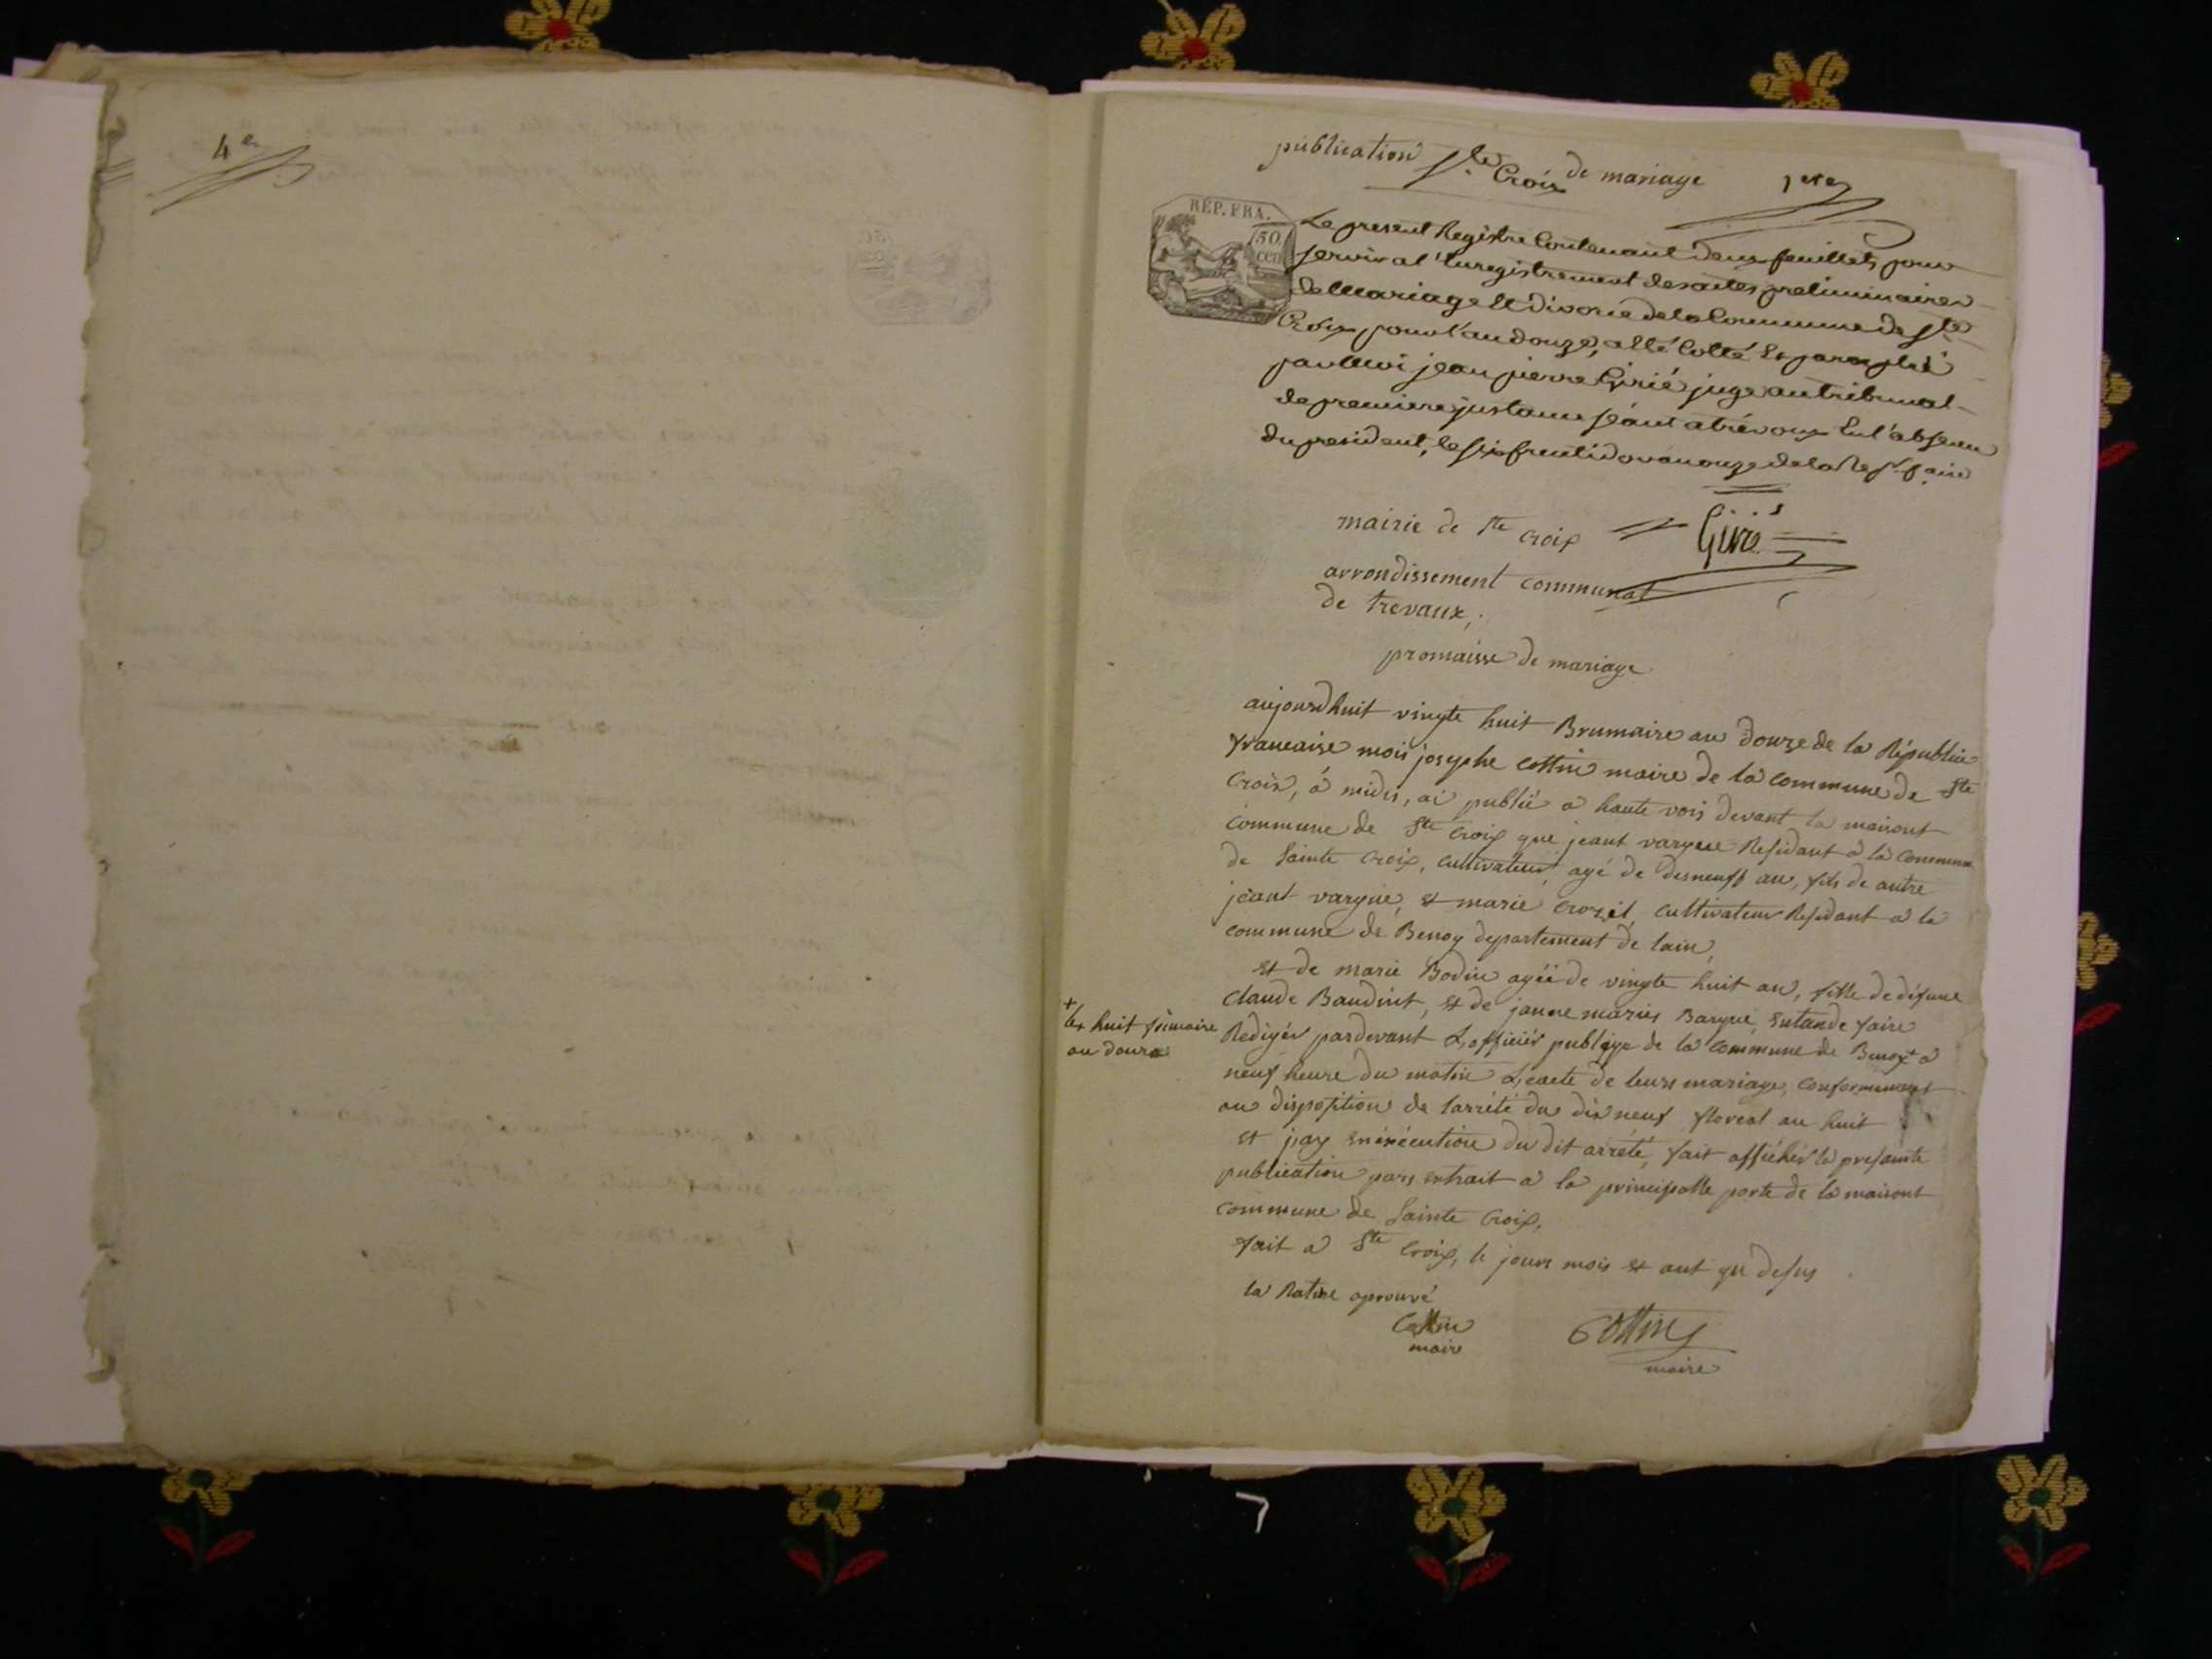 4e
publication Ste Croix de mariage 1ere
RÉP. FRA.
50
CEN
Le present Registre Contenant deux feuillets pour
servir a l'Enregistrement des actes preliminaires
de Mariage et divorce de la Commune de Ste
Croix pour l'an douze, a été Cotté et paraphé
par Moi jean pierre Girié juge au tribunal
de premiere justance séant a trévoux En l'absence
du president, le six fructidor an onze de la Rep. f. aise
mairie de Ste Croix
Girié
arrondissement communal
de trevaux,
promaisse de mariage
aujourdhuit vingte huit Brumaire an douze de la République
francaise mois josephe Cottin maire de la commune de Ste
Croix, á midis, ai publié a haute vois devant la maisont
commune de Ste Croix que jeant vargue Residant à la commune
de Sainte Croix, cultivateur, agé de disneuff an, fils de autre
jéant vargue, et marie Crozet, cultivateur Residant a la
commune de Benoy departement de lain,
et de marie Bodin agéé de vingte huit an, fille de défunt
Claude Baudint, et de janne maries Bargue, Entande faire
Redigér pardevant L,officiér publique de la commune de Benoy + a
+ les huit frimaire
an douze
neuf heure du matin L,acte de leurs mariage, conformement
au disposition de larrété du dix neuf floreal an huit
et jay en éxécution du dit arrété, fait affichér la presante
publication pars extrait a la principalle porte de la maisont
commune de Sainte Croix,
fait a Ste Croix, le jours mois et ant qu desus
la Rature aprouvé
Cottin
maire
Cottin
maire